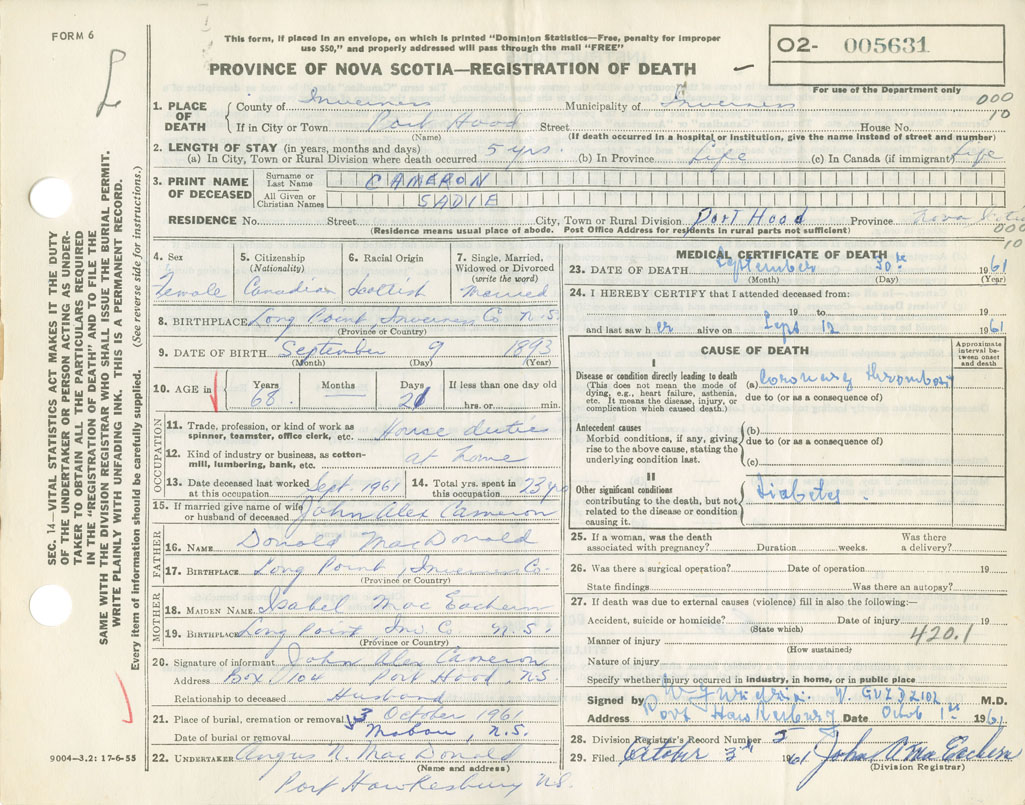 FORM 6
This form, if placed in an envelope, on which is printed "Dominion Statistics—Free, penalty for improper
use $50," and properly addressed will pass through the mail "FREE"
PROVINCE OF NOVA SCOTIA—REGISTRATION OF DEATH
O2- 005631
For use of the Department only
000
10
1. PLACE OF DEATH County of Inverness Municipality of Inverness
If in City or Town Port Hood Street House No.
(Name) (If death occurred in a hospital or institution, give the name instead of street and number)
2. LENGTH OF STAY (in years, months and days)
(a) In City, Town or Rural Division where death occurred 5 yrs. (b) In Province Life (c) In Canada (if immigrant) Life
3. PRINT NAME OF DECEASED Surname or Last Name CAMERON
All Given or Christian Names SADIE
RESIDENCE No. Street City, Town or Rural Division Port Hood Province Nova Scotia
(Residence means usual place of abode. Post Office Address for residents in rural parts not sufficient)
000
10
4. Sex Female
5. Citizenship (Nationality) Canadian
6. Racial Origin Scottish
7. Single, Married, Widowed or Divorced (write the word) Married
8. BIRTHPLACE Long Point, Inverness Co N.S.
(Province or Country)
9. DATE OF BIRTH September 9 1893
(Month) (Day) (Year)
10. AGE in Years 68 Months Days 21 If less than one day old hrs. or min.
OCCUPATION
11. Trade, profession, or kind of work as spinner, teamster, office clerk, etc. House duties
12. Kind of industry or business, as cotton-mill, lumbering, bank, etc. at home
13. Date deceased last worked at this occupation Sept. 1961 14. Total yrs. spent in this occupation 23 yrs
15. If married give name of wife or husband of deceased John Alex Cameron
FATHER
16. NAME Donald MacDonald
17. BIRTHPLACE Long Point, Inverness Co.
(Province or Country)
MOTHER
18. MAIDEN NAME Isabel MacEachern
19. BIRTHPLACE Long Point Inv. Co N.S.
(Province or Country)
20. Signature of informant John Alex Cameron
Address Box 104 Port Hood, N.S.
Relationship to deceased Husband
21. Place of burial, cremation or removal 3 October 1961
Date of burial or removal Mabou, N.S.
22. UNDERTAKER Angus N. MacDonald
(Name and address)
Port Hawkesbury N.S.
MEDICAL CERTIFICATE OF DEATH
23. DATE OF DEATH September 30th 1961
(Month) (Day) (Year)
24. I HEREBY CERTIFY that I attended deceased from:
19 to 19
and last saw her alive on Sept 12 1961
CAUSE OF DEATH
Approximate interval between onset and death
I
Disease or condition directly leading to death
(This does not mean the mode of dying, e.g., heart failure, asthenia, etc. It means the disease, injury, or complication which caused death.)
(a) Coronary thrombosis
due to (or as a consequence of)
Antecedent causes
Morbid conditions, if any, giving rise to the above cause, stating the underlying condition last.
(b)
due to (or as a consequence of)
(c)
II
Other significant conditions
contributing to the death, but not related to the disease or condition causing it.
Diabetes.
25. If a woman, was the death associated with pregnancy? Duration weeks. Was there a delivery?
26. Was there a surgical operation? Date of operation 19
State findings Was there an autopsy?
27. If death was due to external causes (violence) fill in also the following:—
Accident, suicide or homicide? Date of injury 19
(State which)
420.1
Manner of injury
(How sustained)
Nature of injury
Specify whether injury occurred in industry, in home, or in public place
Signed by M.D.
Address Port Hawkesbury Date Octob 1st 1961
28. Division Registrar's Record Number 5
29. Filed October 3rd 1961 John A MacEachern
(Division Registrar)
SEC. 14—VITAL STATISTICS ACT MAKES IT THE DUTY
OF THE UNDERTAKER OR PERSON ACTING AS UNDER-
TAKER TO OBTAIN ALL THE PARTICULARS REQUIRED
IN THE "REGISTRATION OF DEATH" AND TO FILE THE
SAME WITH THE DIVISION REGISTRAR WHO SHALL ISSUE THE BURIAL PERMIT.
WRITE PLAINLY WITH UNFADING INK. THIS IS A PERMANENT RECORD.
Every item of information should be carefully supplied. (See reverse side for instructions.)
9004—3.2: 17-6-55